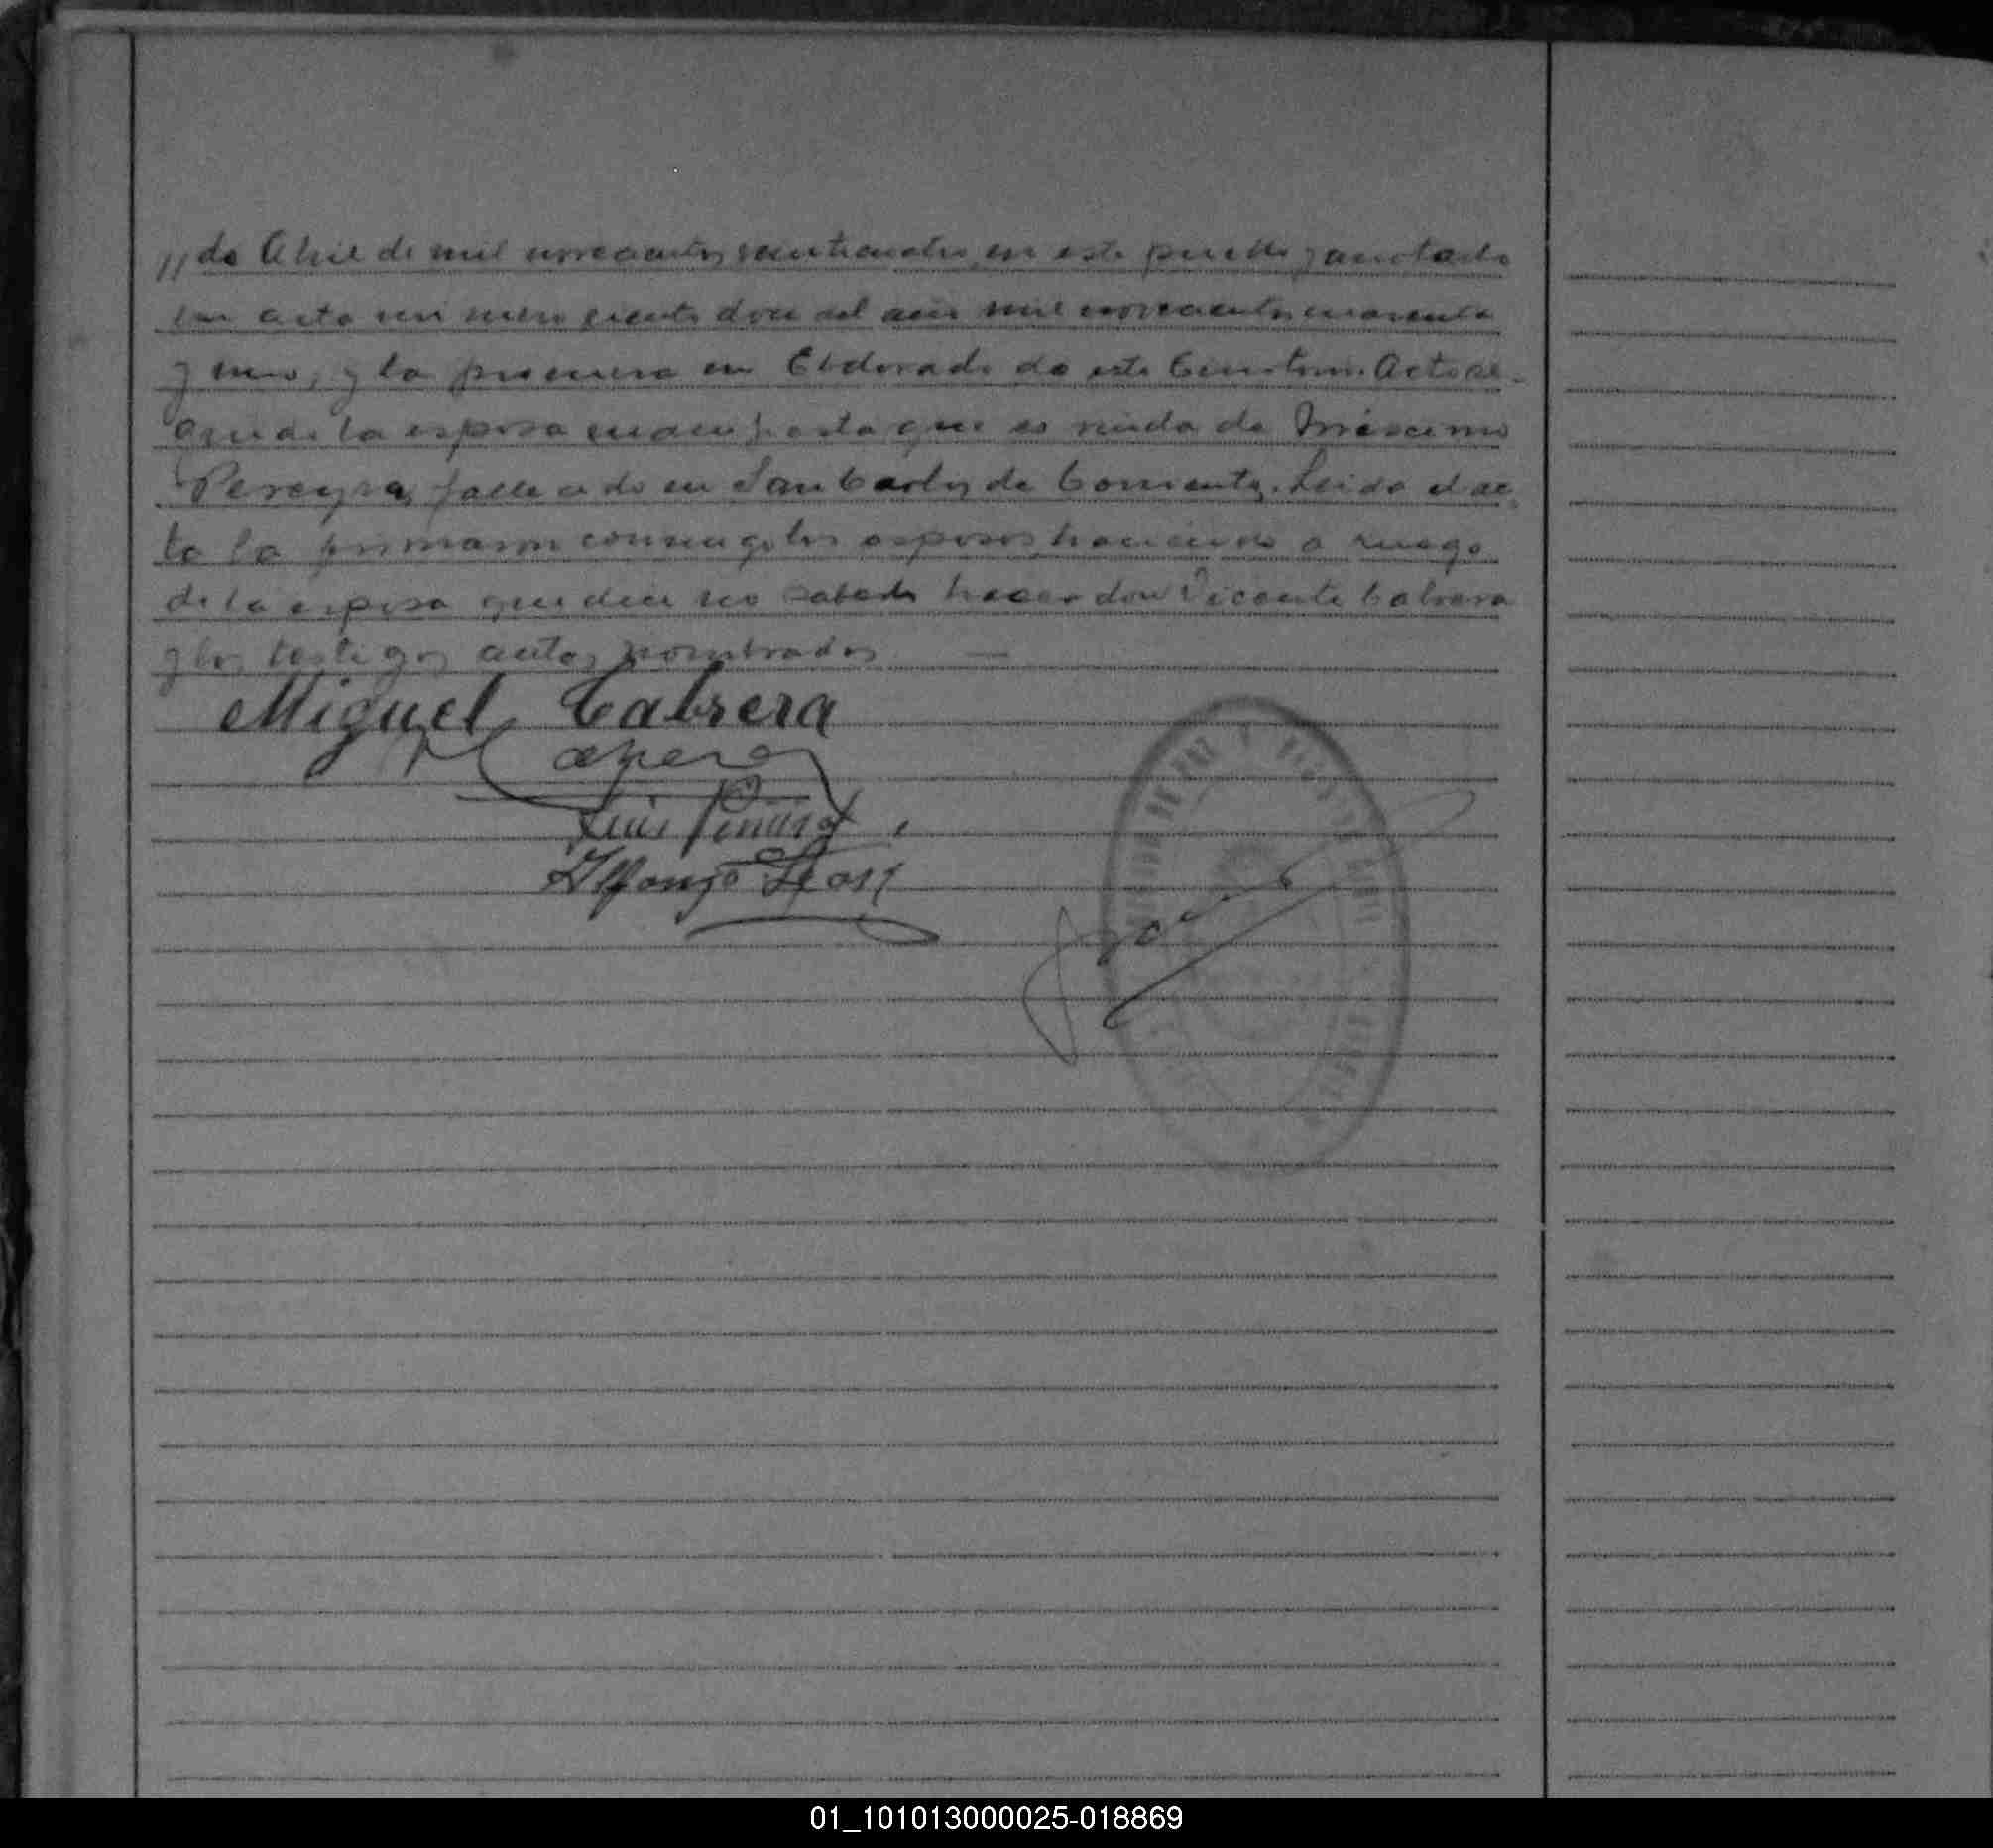 // de Abril de mil novecientos veinticuatro, en este pueblo y anotado
en acta número ciento doce del año mil novecientos cuarenta
y uno, y la primera en Eldorado de este Territorio. Acto se-
guido la esposa manifiesta que es viuda de Máximo
Pereyra, fallecido en San Carlos de Corrientes. Leida el ac-
ta la firmaron conmigo los esposos, haciendo a ruego
de la esposa que dice no saberlo hacer don Vicente Cabrera
y los testigos antes nombrados —
Miguel Cabrera
Luis
Alfonso
01_101013000025-018869